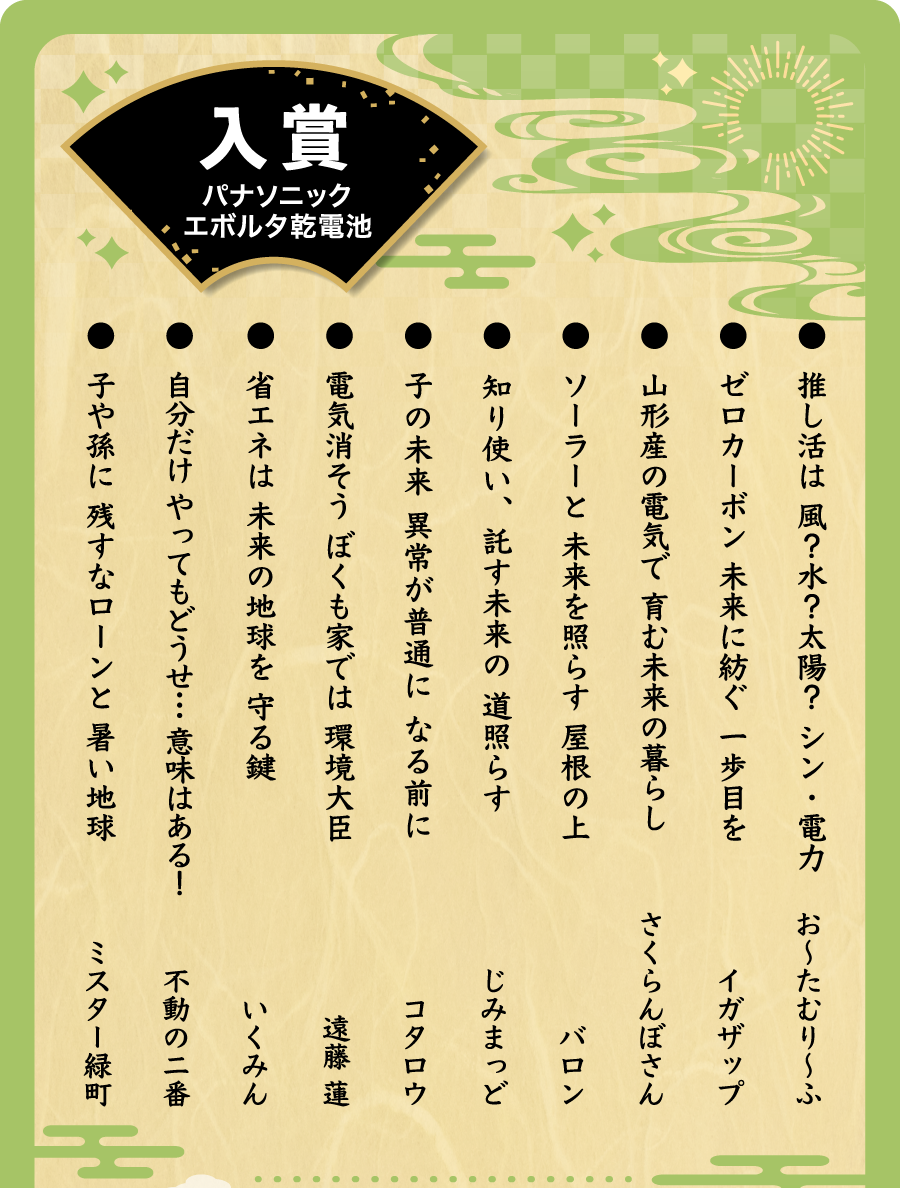 入賞
パナソニック
エボルタ乾電池
● 推し活は 風？水？太陽？ シン・電力 お〜たむり〜ふ
● ゼロカーボン 未来に紡ぐ 一歩目を イガザップ
● 山形産の電気で 育む未来の暮らし さくらんぼさん
● ソーラーと 未来を照らす 屋根の上 バロン
● 知り使い、託す未来の 道照らす じみまっど
● 子の未来 異常が普通に なる前に コタロウ
● 電気消そう ぼくも家では 環境大臣 遠藤 蓮
● 省エネは 未来の地球を 守る鍵 いくみん
● 自分だけ やってもどうせ… 意味はある！ 不動の二番
● 子や孫に 残すなローンと 暑い地球 ミスター緑町